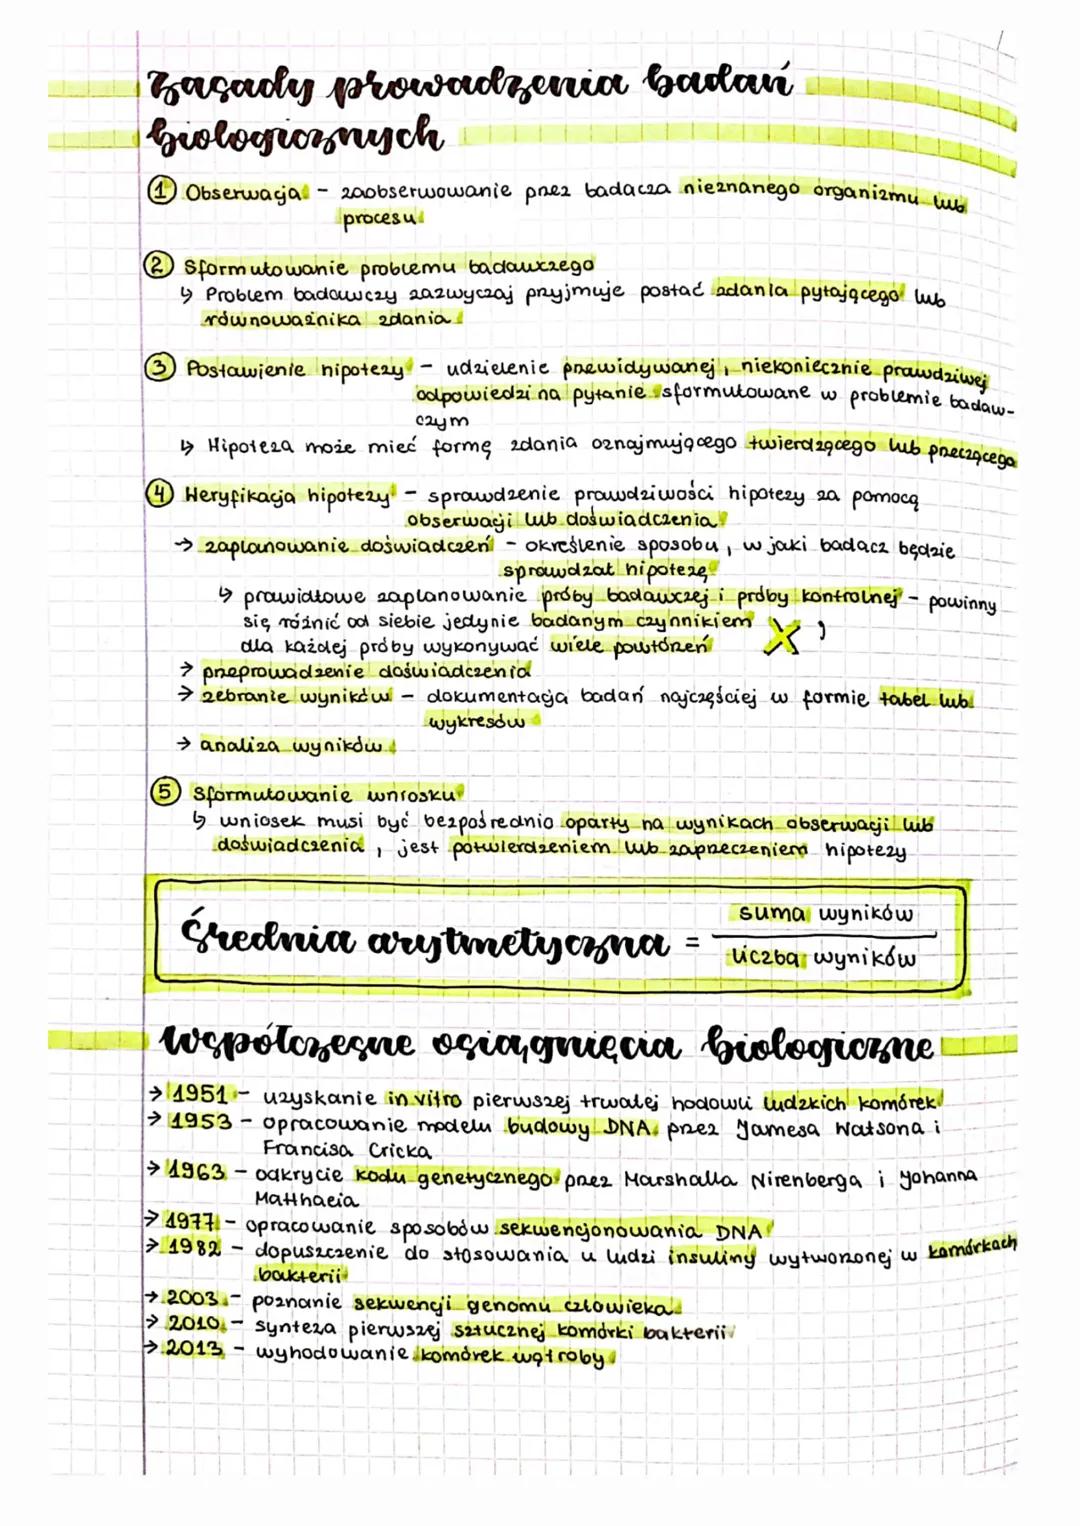 Zasady prowadzenia badań
biologicznych
1 Obserwacja - zaobserwowanie przez badacza nieznanego organizmu lub
procesu
2 Sformułowanie problemu badawczego
↳ Problem badawczy zazwyczaj przyjmuje postać zdania pytającego lub
równoważnika zdania
3 Postawienie hipotezy - udzielenie przewidywanej, niekoniecznie prawdziwej
odpowiedzi na pytanie sformułowane w problemie badaw-
czym
↳ Hipoteza może mieć formę zdania oznajmującego twierdzącego lub przeczącego
4 Weryfikacja hipotezy - sprawdzenie prawdziwości hipotezy za pomocą
obserwacji lub doświadczenia
→ zaplanowanie doświadczeń - określenie sposobu, w jaki badacz będzie
sprawdzał hipotezę
↳ prawidłowe zaplanowanie próby badawczej i próby kontrolnej - powinny
się różnić od siebie jedynie badanym czynnikiem X ,
dla każdej próby wykonywać wiele powtórzeń
→ przeprowadzenie doświadczenia
→ zebranie wyników - dokumentacja badań najczęściej w formie tabel lub
wykresów
→ analiza wyników
5 Sformułowanie wniosku
↳ wniosek musi być bezpośrednio oparty na wynikach obserwacji lub
doświadczenia, jest potwierdzeniem lub zaprzeczeniem hipotezy
suma wyników
Średnia arytmetyczna =
liczba wyników
Współczesne osiągnięcia biologiczne
→ 1951 - uzyskanie in vitro pierwszej trwałej hodowli ludzkich komórek
→ 1953 - opracowanie modelu budowy DNA przez Jamesa Watsona i
Francisa Cricka
→ 1963 - odkrycie kodu genetycznego przez Marshalla Nirenberga i Johanna
Matthaeia
→ 1977 - opracowanie sposobów sekwencjonowania DNA
→ 1982 - dopuszczenie do stosowania u ludzi insuliny wytworzonej w komórkach
bakterii
→ 2003 - poznanie sekwencji genomu człowieka
→ 2010 - synteza pierwszej sztucznej komórki bakterii
→ 2013 - wyhodowanie komórek wątroby